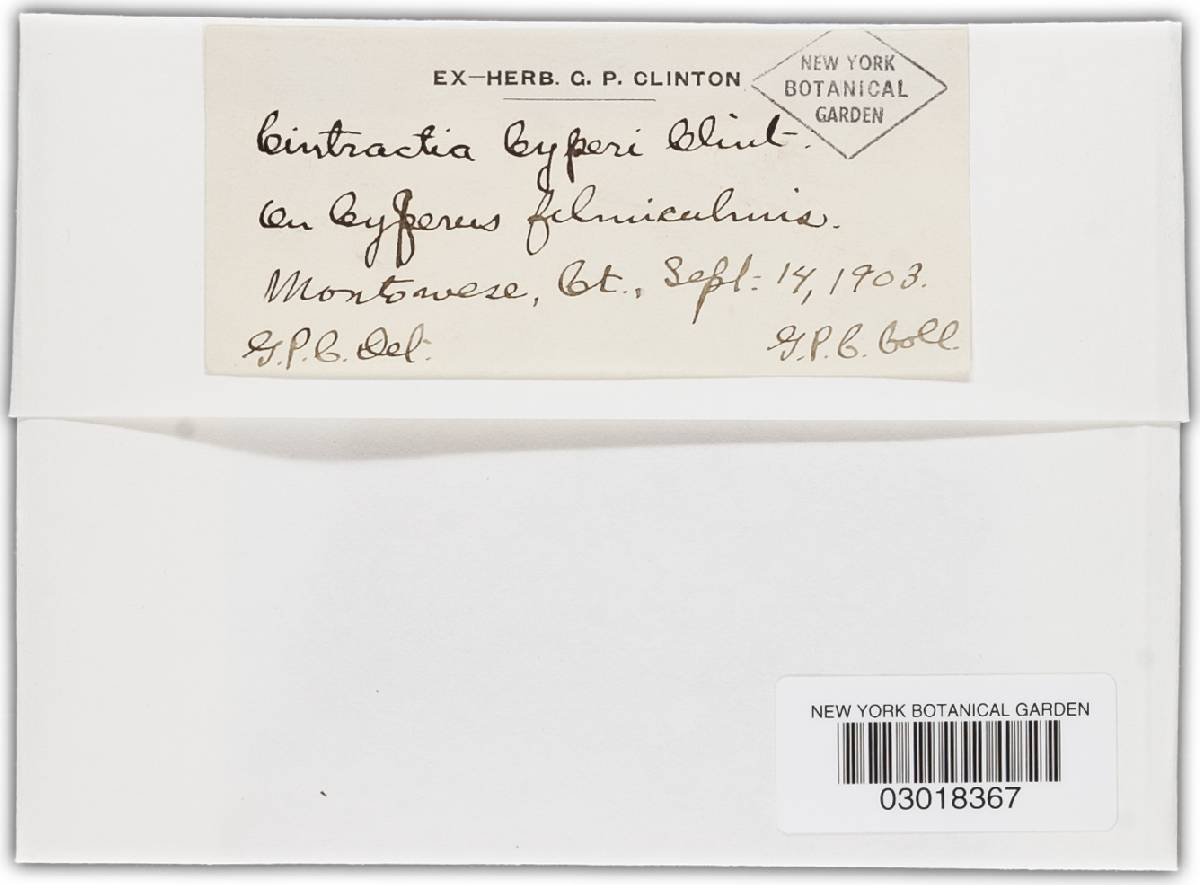 EX—HERB. G. P. CLINTON
NEW YORK
BOTANICAL
GARDEN
Cintractia Cyperi Clint.
On Cyperus filmiculmis.
Montowese, Ct., Sept. 14, 1903.
G.P.C. Det. G.P.C. Coll.
NEW YORK BOTANICAL GARDEN
03018367